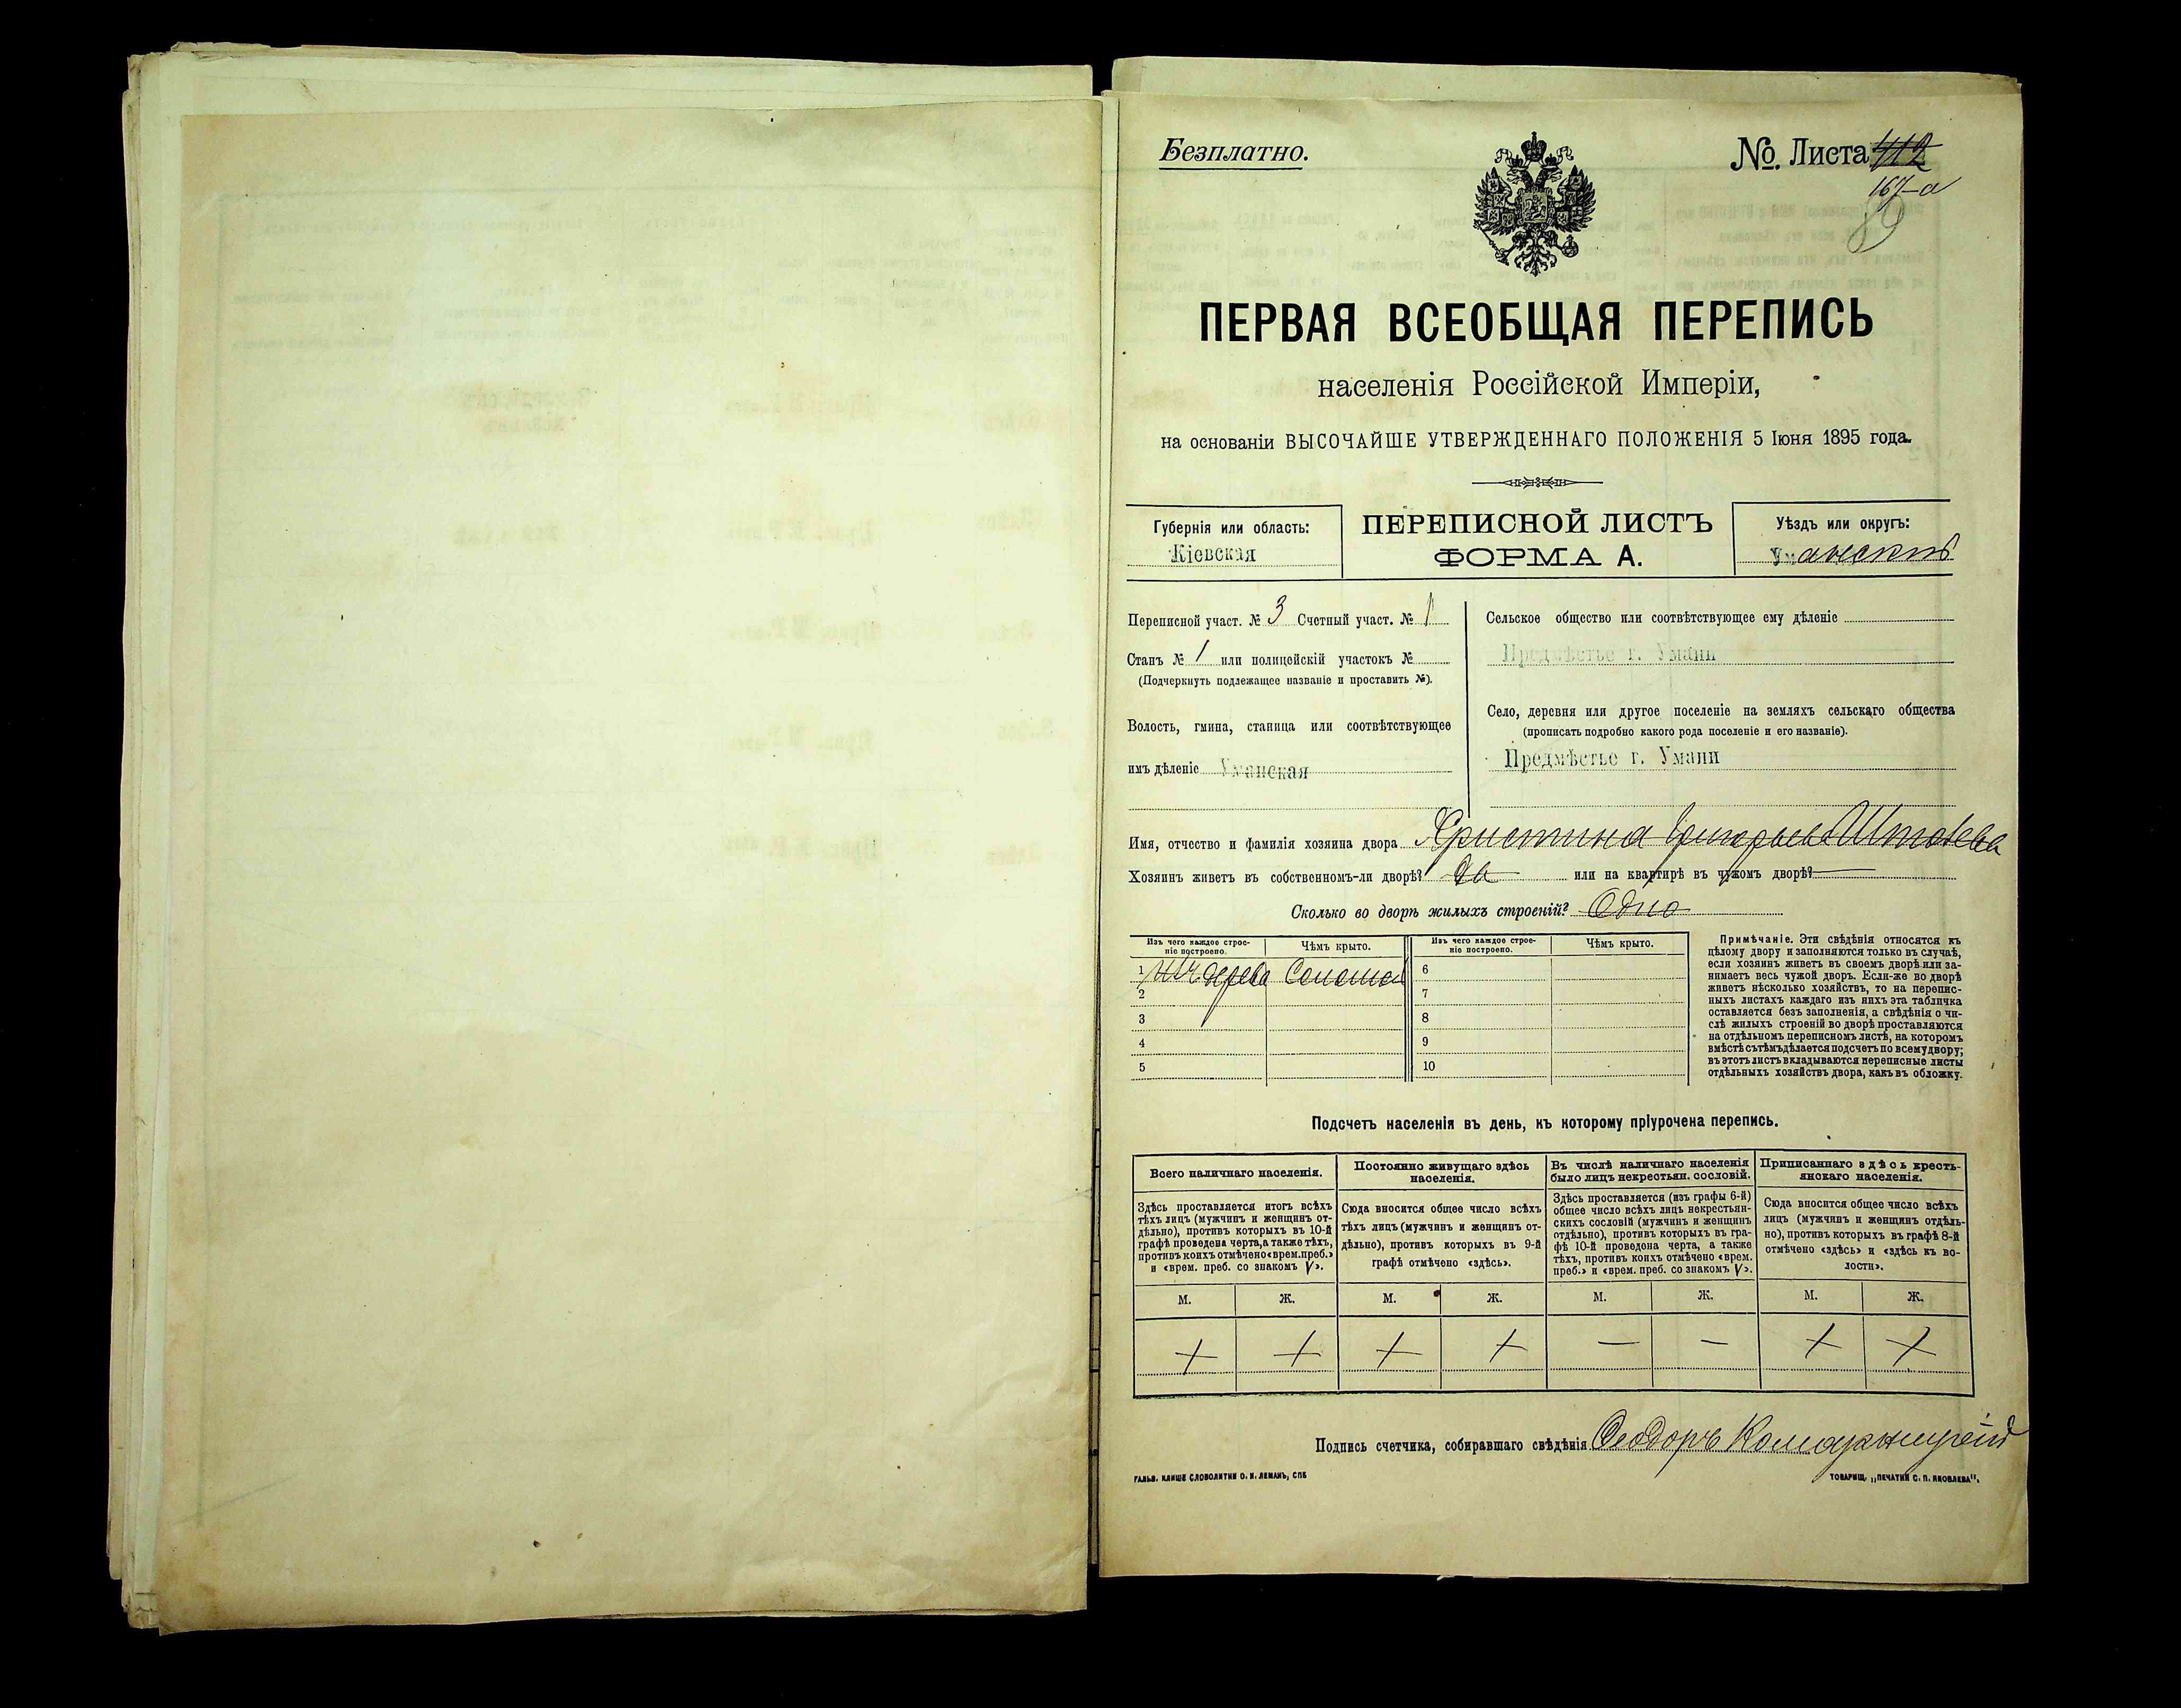 Безплатно.
№. Листа 112
167-а
ПЕРВАЯ ВСЕОБЩАЯ ПЕРЕПИСЬ
населенія Россійской Имперіи,
на основаніи ВЫСОЧАЙШЕ УТВЕРЖДЕННАГО ПОЛОЖЕНІЯ 5 Іюня 1895 года.
Губернія или область:
Кіевская
ПЕРЕПИСНОЙ ЛИСТЪ
ФОРМА А.
Уѣздъ или округъ:
Уманскій
Переписной участ. № 3 Счетный участ. № 1
Станъ № 1 или полицейскій участокъ №
(Подчеркнуть подлежащее названіе и проставить №).
Волость, гмина, станица или соотвѣтствующее
имъ дѣленіе Уманская
Сельское общество или соотвѣтствующее ему дѣленіе
Предмѣстье г. Умани
Село, деревня или другое поселеніе на земляхъ сельскаго общества
(прописать подробно какого рода поселеніе и его названіе).
Предмѣстье г. Умани
Имя, отчество и фамилія хозяина двора Христина Григорьева
Хозяинъ живетъ въ собственномъ-ли дворѣ? Да или на квартирѣ въ чужомъ дворѣ?
Сколько во дворѣ жилыхъ строеній? Одно
Изъ чего каждое строеніе построено.
Чѣмъ крыто.
Изъ чего каждое строеніе построено.
Чѣмъ крыто.
1 Изъ дерева Соломой
6
2
7
3
8
4
9
5
10
Примѣчаніе. Эти свѣдѣнія относятся къ
цѣлому двору и заполняются только въ случаѣ,
если хозяинъ живетъ въ своемъ дворѣ или за-
нимаетъ весь чужой дворъ. Если-же во дворѣ
живетъ нѣсколько хозяйствъ, то на перепис-
ныхъ листахъ каждаго изъ нихъ эта табличка
оставляется безъ заполненія, а свѣдѣнія о чи-
слѣ жилыхъ строеній во дворѣ проставляются
на отдѣльномъ переписномъ листѣ, на которомъ
вмѣстѣ съ тѣмъ дѣлается подсчетъ по всему двору;
въ этотъ листъ вкладываются переписные листы
отдѣльныхъ хозяйствъ двора, какъ въ обложку.
Подсчетъ населенія въ день, къ которому пріурочена перепись.
Всего наличнаго населенія.
Здѣсь проставляется итогъ всѣхъ
тѣхъ лицъ (мужчинъ и женщинъ от-
дѣльно), противъ которыхъ въ 10-й
графѣ проведена черта, а также тѣхъ,
противъ коихъ отмѣчено «врем. преб.»
и «врем. преб. со знакомъ V».
Постоянно живущаго здѣсь
населенія.
Сюда вносится общее число всѣхъ
тѣхъ лицъ (мужчинъ и женщинъ от-
дѣльно), противъ которыхъ въ 9-й
графѣ отмѣчено «здѣсь».
Въ числѣ наличнаго населенія
было лицъ некрестьян. сословій.
Здѣсь проставляется (изъ графы 6-й)
общее число всѣхъ лицъ некрестьян-
скихъ сословій (мужчинъ и женщинъ
отдѣльно), противъ которыхъ въ гра-
фѣ 10-й проведена черта, а также
тѣхъ, противъ коихъ отмѣчено «врем.
преб.» и «врем. преб. со знакомъ V».
Приписаннаго здѣсь кресть-
янскаго населенія.
Сюда вносится общее число всѣхъ
лицъ (мужчинъ и женщинъ отдѣль-
но), противъ которыхъ въ графѣ 8-й
отмѣчено «здѣсь» и «здѣсь къ во-
лости».
М. Ж. М. Ж. М. Ж. М. Ж.
+ + + + — — + +
Подпись счетчика, собиравшаго свѣдѣнія Феодоръ
ГАЛЬВ. КЛИШЕ СЛОВОЛИТНИ О. И. ЛЕМАНЪ, СПБ
ТОВАРИЩ. „ПЕЧАТНИ С. П. ЯКОВЛЕВА".